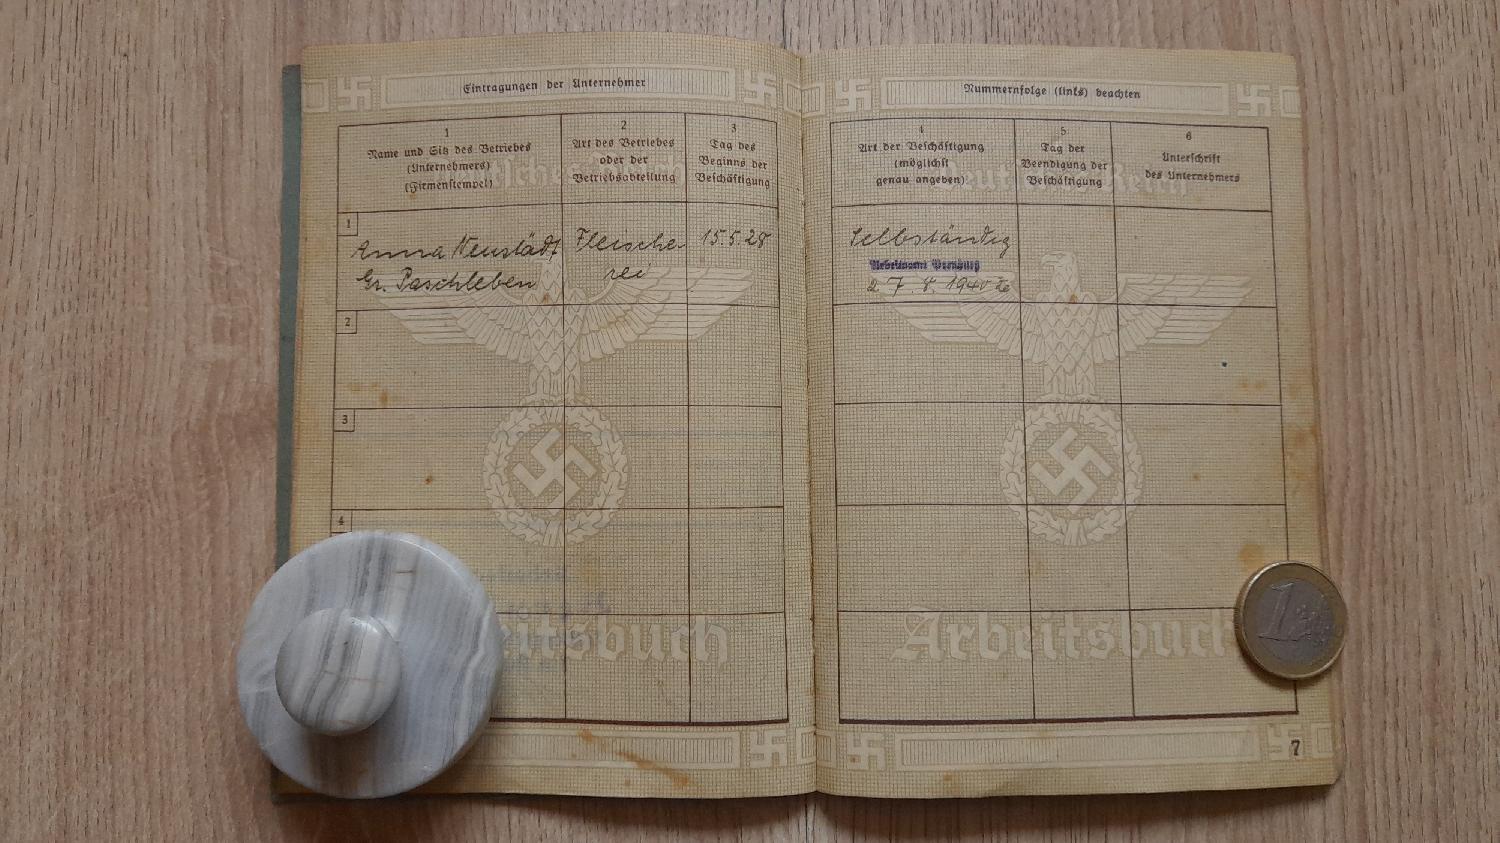 Eintragungen der Unternehmer
1
Name und Sitz des Betriebes
(Unternehmers)
(Firmenstempel)
2
Art des Betriebes
oder der
Betriebsabteilung
3
Tag des
Beginns der
Beschäftigung
1
Anna Neustädt
Gr. Paschleben
Fleische
rei
15.5.28
2
3
4
Arbeitsbuch
Nummernfolge (links) beachten
4
Art der Beschäftigung
(möglichst
genau angeben)
5
Tag der
Beendigung der
Beschäftigung
6
Unterschrift
des Unternehmers
Deutsches Reich
Selbständig
Arbeitsamt Bernburg
27.8.1940
Arbeitsbuch
7
1